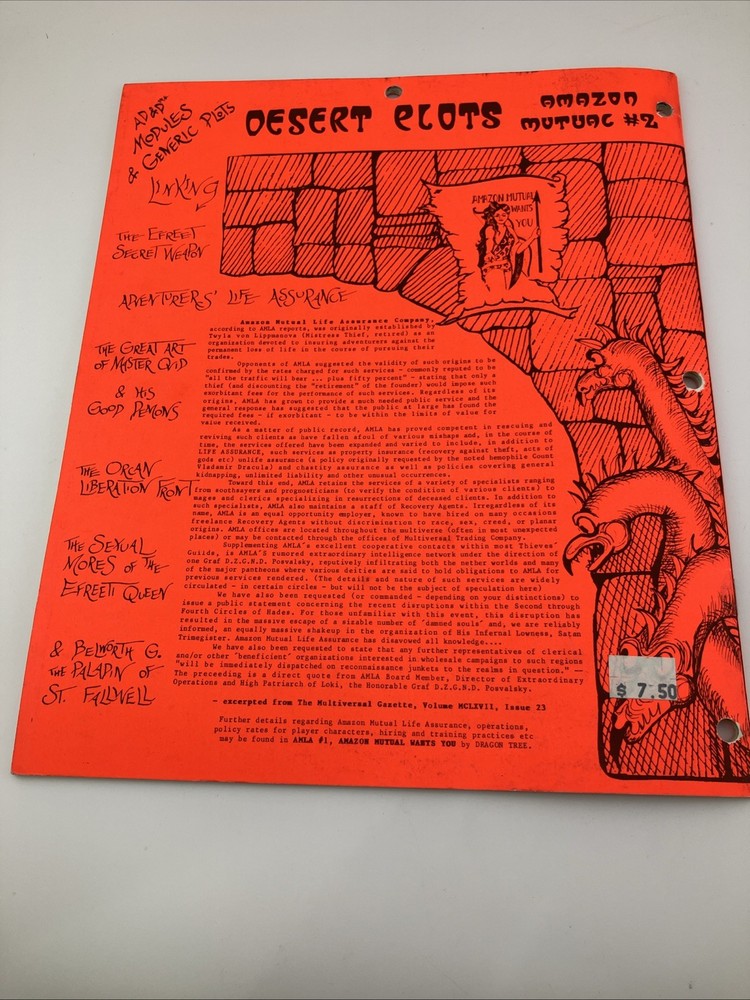 AD&D™
MODULES
& GENERIC PLOTS
LINKING
THE EFREET
SECRET WEAPON
ADVENTURERS' LIFE ASSURANCE
THE GREAT ART
OF MASTER QUID
& HIS
GOOD DEMONS
THE ORGAN
LIBERATION FRONT
THE SEXUAL
MORES OF THE
EFREETI QUEEN
& BELWORTH G.
THE PALADIN OF
ST. FALLWELL
DESERT PLOTS
AMAZON
MUTUAL #2
AMAZON MUTUAL
WANTS
YOU
Amazon Mutual Life Assurance Company,
according to AMLA reports, was originally established by
Twyla von Lippmanova (Mistress Thief, retired) as an
organization devoted to insuring adventurers against the
permanent loss of life in the course of pursuing their
trades.
Opponents of AMLA suggested the validity of such origins to be
confirmed by the rates charged for such services - commonly reputed to be
"all the traffic will bear ... plus fifty percent" - stating that only a
thief (and discounting the "retirement" of the founder) would impose such
exorbitant fees for the performance of such services. Regardless of its
origins, AMLA has grown to provide a much needed public service and the
general response has suggested that the public at large has found the
required fees - if exorbitant - to be within the limits of value for
value received.
As a matter of public record, AMLA has proved competent in rescuing and
reviving such clients as have fallen afoul of various mishaps and, in the course of
time, the services offered have been expanded and varied to include, in addition to
LIFE ASSURANCE, such services as property insurance (recovery against theft, acts of
gods etc) unlife assurance (a policy originally requested by the noted hemophile Count
Vladimir Dracula) and chastity assurance as well as policies covering general
kidnapping, unlimited liability and other unusual occurrences.
Toward this end, AMLA retains the services of a variety of specialists ranging
from soothsayers and prognosticians (to verify the condition of various clients) to
mages and clerics specializing in resurrections of deceased clients. In addition to
such specialists, AMLA also maintains a staff of Recovery Agents. Irregardless of its
name, AMLA is an equal opportunity employer, known to have hired on many occasions
freelance Recovery Agents without discrimination to race, sex, creed, or planar
origins. AMLA offices are located throughout the multiverse (often in most unexpected
places) or may be contacted through the offices of Multiversal Trading Company.
Supplementing AMLA's excellent cooperative contacts within most Thieves'
Guilds, is AMLA'S rumored extraordinary intelligence network under the direction of
one Graf D.Z.G.N.D. Posvalsky, reputively infiltrating both the nether worlds and many
of the major pantheons where various deities are said to hold obligations to AMLA for
previous services rendered. (The details and nature of such services are widely
circulated - in certain circles - but will not be the subject of speculation here)
We have also been requested (or commanded - depending on your distinctions) to
issue a public statement concerning the recent disruptions within the Second through
Fourth Circles of Hades. For those unfamiliar with this event, this disruption has
resulted in the massive escape of a sizable number of 'damned souls' and, we are reliably
informed, an equally massive shakeup in the organization of His Infernal Lowness, Satan
Trimegister. Amazon Mutual Life Assurance has disavowed all knowledge....
We have also been requested to state that any further representatives of clerical
and/or other 'beneficient' organizations interested in wholesale campaigns to such regions
"will be immediately dispatched on reconnaissance junkets to the realms in question." —
The preceeding is a direct quote from AMLA Board Member, Director of Extraordinary
Operations and High Patriarch of Loki, the Honorable Graf D.Z.G.N.D. Posvalsky.
- excerpted from The Multiversal Gazette, Volume MCLXVII, Issue 23
Further details regarding Amazon Mutual Life Assurance, operations,
policy rates for player characters, hiring and training practices etc
may be found in AMLA #1, AMAZON MUTUAL WANTS YOU by DRAGON TREE.
$ 7.50